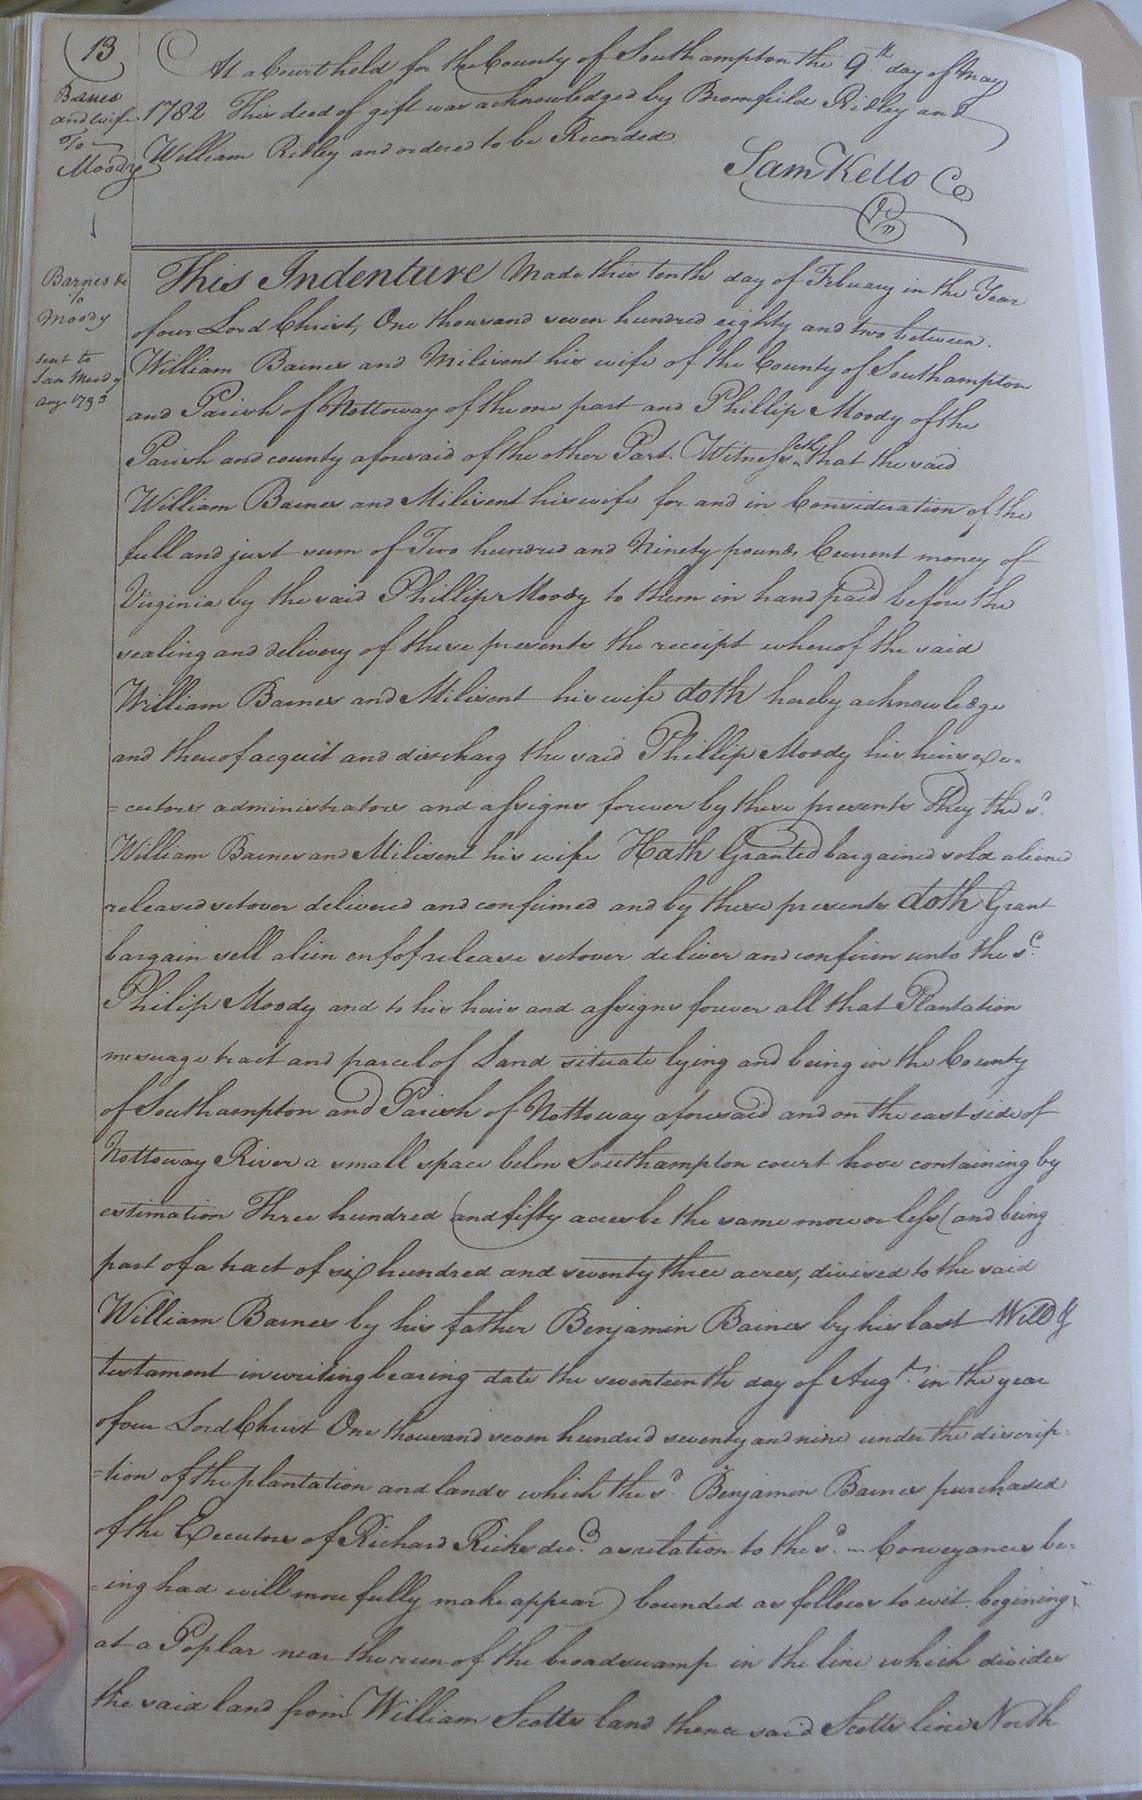 13
At a Court held for the County of Southampton the 9th day of May
1782 This deed of gift was acknowledged by Bromfield Ridley and
William Ridley and ordered to be Recorded
Sam Kello Co
Barnes
and wife
To
Moody
Barnes &c
To
Moody
sent to
Sam Moody
Augt 1793
This Indenture Made this tenth day of Febuary in the Year
of our Lord Christ, One thousand seven hundred eighty and two between
William Barnes and Milisent his wife of the County of Southampton
and Parish of Nottoway of the one part and Phillip Moody of the
Parish and county aforesaid of the other Part. Witnesseth that the said
William Barnes and Milisent his wife for and in Consideration of the
full and just sum of Two hundred and Ninety pounds Current money of
Virginia by the said Phillip Moody to them in hand paid before the
sealing and delivery of these presents the receipt whereof the said
William Barnes and Milisent his wife doth hereby acknowledge
and thereof acquit and discharg the said Phillip Moody his heirs exe-
=cutors administrators and assigns forever by these presents They the sd
William Barnes and Milisent his wife Hath Granted bargained sold aliened
released setover delivered and confirmed and by these presents doth Grant
bargain sell alien enfof release setover deliver and confirm unto the sd
Philip Moody and to his hairs and assigns forever all that Plantation
mesuage tract and parcel of Land situate lying and being in the County
of Southampton and Parish of Nottoway aforesaid and on the east side of
Nottoway River a small space below Southampton court hose containing by
estimation Three hundred (and fifty acres be the same more or less (and being
part of a tract of six hundred and seventy three acres, divised to the said
William Barnes by his father Benjamin Barnes by his last Will &
testament in writing bearing date the seventeenth day of Augt in the year
of our Lord Christ One thousand seven hundred seventy and nine under the discrip=
=tion of the plantation and lands which the sd Benjamin Barnes purchased
of the Executors of Richard Ricks decd as relation to the sd Conveyances be=
=ing had will more fully make appear) bounded as follows to wit. begining
at a Poplar near the run of the broad swamp in the line which divides
the said land from William Scotts land thence said Scotts line North